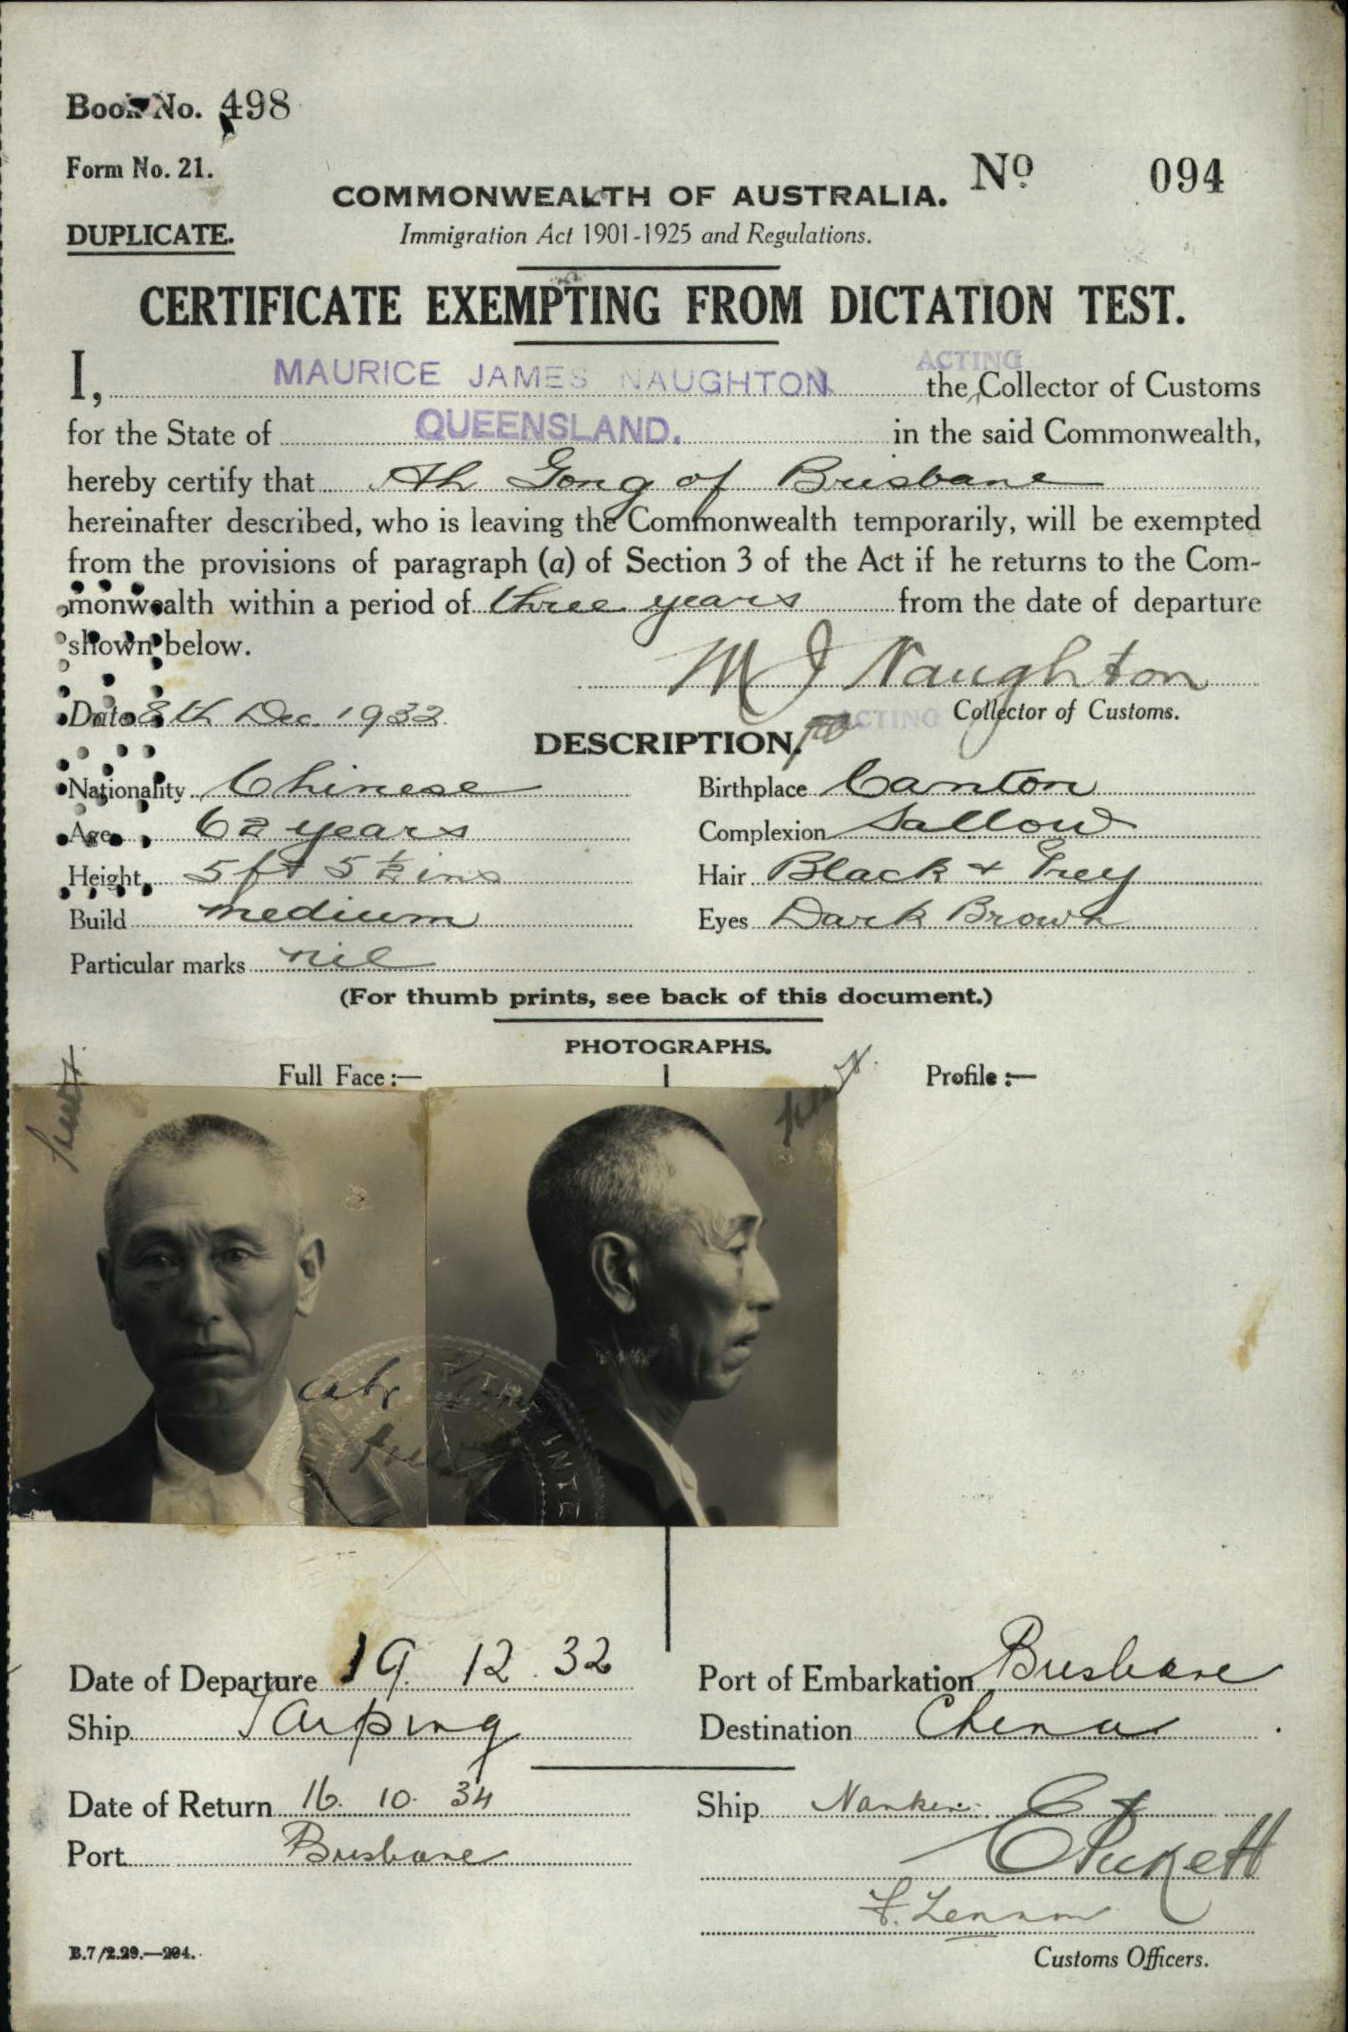 Book No. 498
Form No. 21.
No 094
COMMONWEALTH OF AUSTRALIA.
DUPLICATE.
Immigration Act 1901-1925 and Regulations.
CERTIFICATE EXEMPTING FROM DICTATION TEST.
I, MAURICE JAMES NAUGHTON the ACTING Collector of Customs
for the State of QUEENSLAND. in the said Commonwealth,
hereby certify that Ah Gong of Brisbane
hereinafter described, who is leaving the Commonwealth temporarily, will be exempted
from the provisions of paragraph (a) of Section 3 of the Act if he returns to the Com-
monwealth within a period of three years from the date of departure
shown below.
M J Naughton
Date 8th Dec. 1932
ACTING Collector of Customs.
DESCRIPTION.
Nationality Chinese
Birthplace Canton
Age 62 years
Complexion Sallow
Height 5 ft 5 ½ ins
Hair Black + Grey
Build medium
Eyes Dark Brown
Particular marks nil
(For thumb prints, see back of this document.)
PHOTOGRAPHS.
Full Face :—
Profile :—
Date of Departure 19. 12. 32
Port of Embarkation Brisbane
Ship Taiping
Destination China
Date of Return 16. 10. 34
Ship Nankin
Port Brisbane
F. Lennon
B.7/2.29.—294.
Customs Officers.